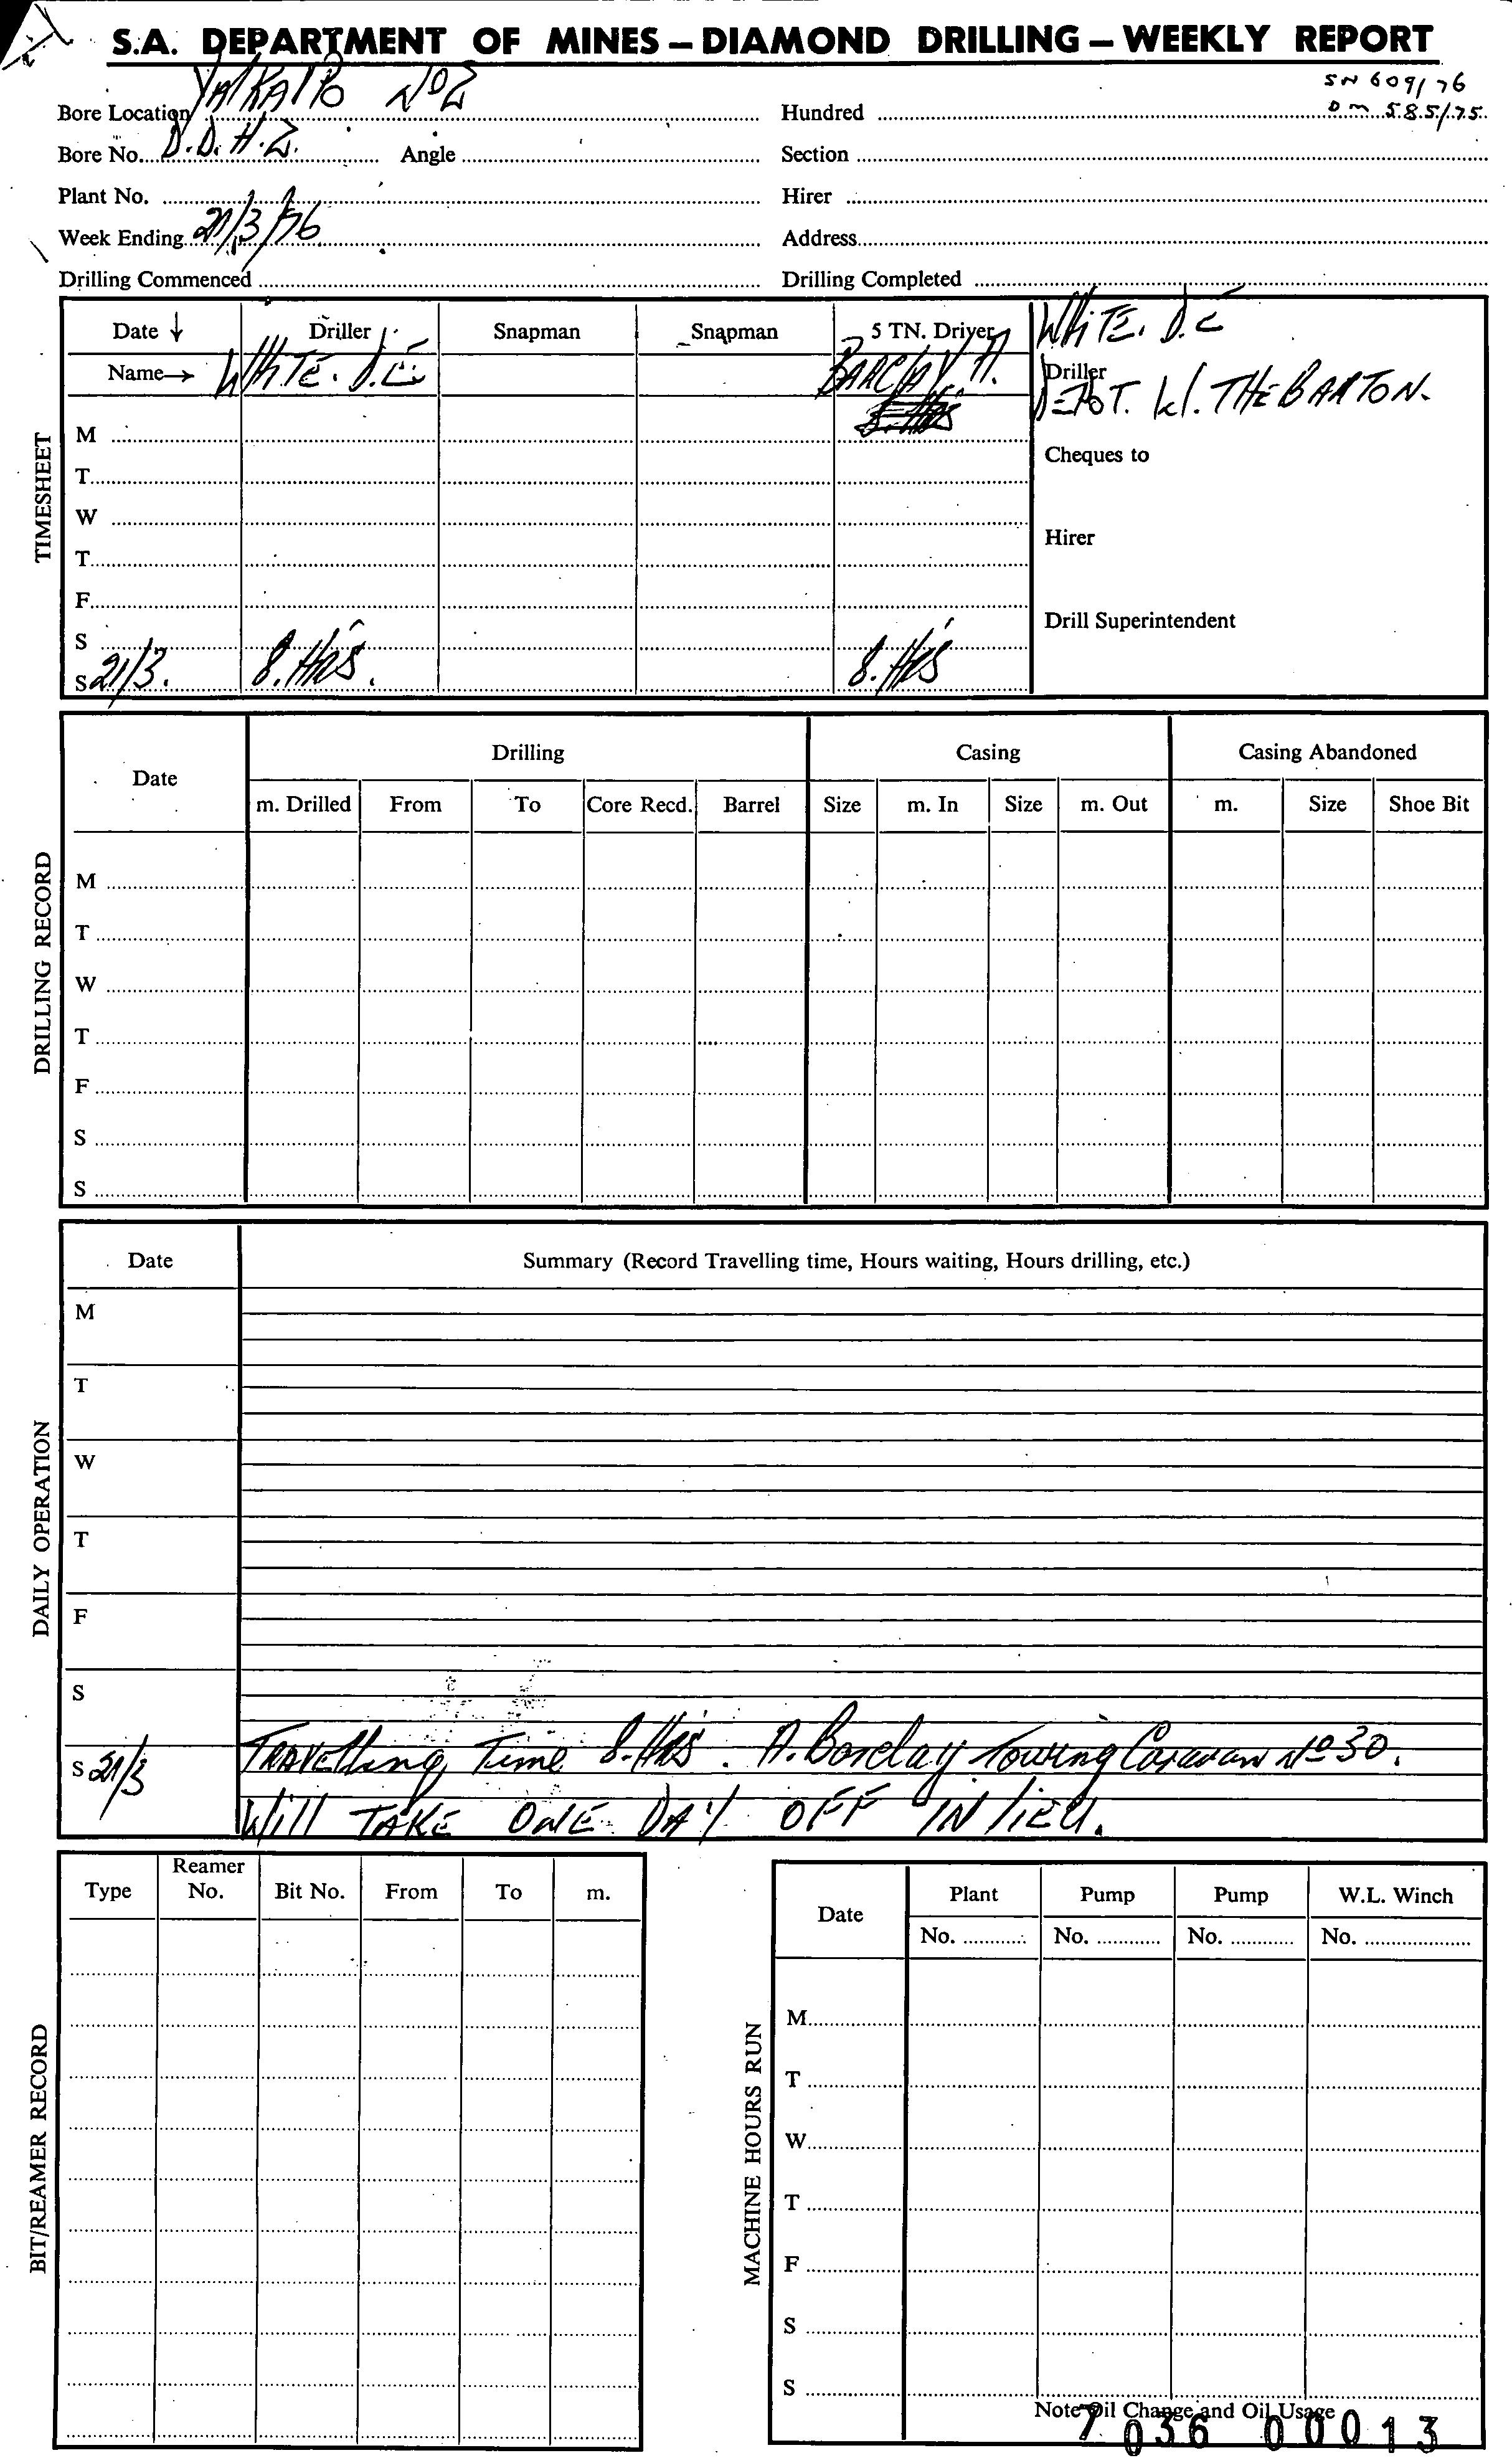 S.A. DEPARTMENT OF MINES – DIAMOND DRILLING – WEEKLY REPORT
SN 609/76
Bore Location YALKALPO No 2 Hundred DM 585/75
Bore No. D.D.H.2. Angle Section
Plant No. Hirer
Week Ending 21/3/76 Address
Drilling Commenced Drilling Completed
TIMESHEET
Date ↓ Driller Snapman Snapman 5 TN. Driver WHITE. D.E
Name→ WHITE. D.E. BARCLAY. A. Driller
DEPOT. W. THEBARTON.
M
Cheques to
T
W
Hirer
T
F
Drill Superintendent
S
S 21/3. 8. HRS. 8. HRS
DRILLING RECORD
Date Drilling Casing Casing Abandoned
m. Drilled From To Core Recd. Barrel Size m. In Size m. Out m. Size Shoe Bit
M
T
W
T
F
S
S
DAILY OPERATION
Date Summary (Record Travelling time, Hours waiting, Hours drilling, etc.)
M
T
W
T
F
S
S 21/3 TRAVElling Time 8. HRS. A. Barclay Towing Caravan No 30.
Will TAKE ONE DAY OFF IN lieu.
BIT/REAMER RECORD
Type Reamer No. Bit No. From To m.
MACHINE HOURS RUN
Date Plant Pump Pump W.L. Winch
No. No. No. No.
M
T
W
T
F
S
S
Note Oil Change and Oil Usage
7 036 00013